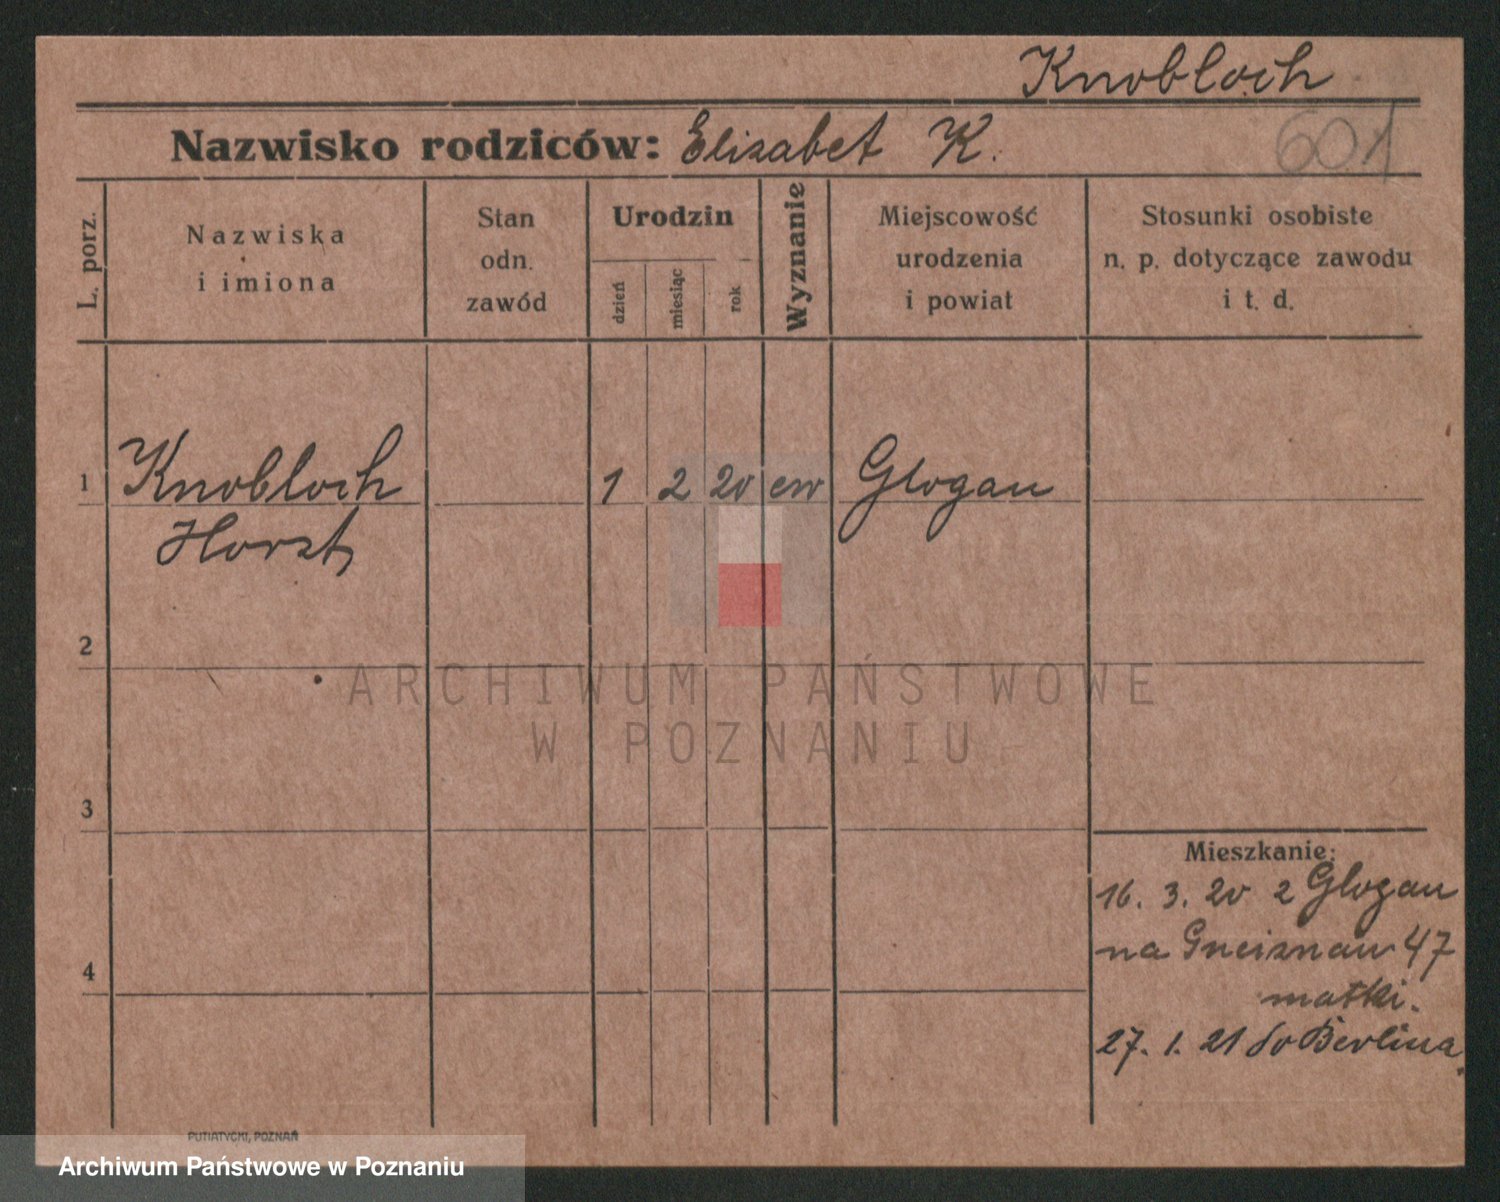 Knobloch
Nazwisko rodziców: Elisabet K.
601
L. porz.
Nazwiska
i imiona
Stan
odn.
zawód
Urodzin
dzień
miesiąc
rok
Wyznanie
Miejscowość
urodzenia
i powiat
Stosunki osobiste
n. p. dotyczące zawodu
i t. d.
1 Knobloch 1 2 20 ew Glogau
Horst
2
3
4
Mieszkanie:
16. 3. 20 z Glogau
na Gneisnau 47
matki.
27. 1. 21 do Berlina.
ARCHIWUM PAŃSTWOWE
W POZNANIU
PUTIATYCKI, POZNAŃ
Archiwum Państwowe w Poznaniu